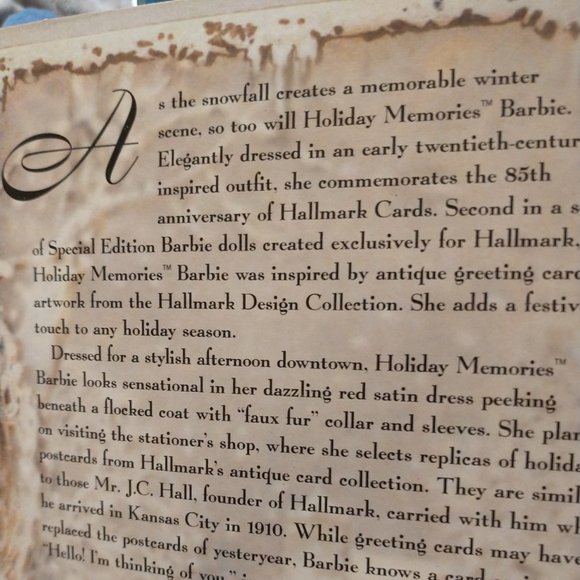 As the snowfall creates a memorable winter
scene, so too will Holiday Memories™ Barbie.
Elegantly dressed in an early twentieth-centur
inspired outfit, she commemorates the 85th
anniversary of Hallmark Cards. Second in a s
of Special Edition Barbie dolls created exclusively for Hallmark,
Holiday Memories™ Barbie was inspired by antique greeting card
artwork from the Hallmark Design Collection. She adds a festiv
touch to any holiday season.
Dressed for a stylish afternoon downtown, Holiday Memories™
Barbie looks sensational in her dazzling red satin dress peeking
beneath a flocked coat with "faux fur" collar and sleeves. She plan
on visiting the stationer's shop, where she selects replicas of holida
postcards from Hallmark's antique card collection. They are simil
to those Mr. J.C. Hall, founder of Hallmark, carried with him wh
he arrived in Kansas City in 1910. While greeting cards may have
replaced the postcards of yesteryear, Barbie knows a card
"Hello! I'm thinking of you"